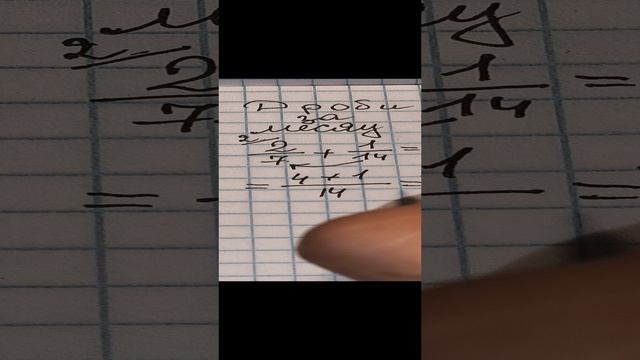 Дроби
за
месяц
2/ 2/7 + 1/14 =
= 4 + 1/14 =